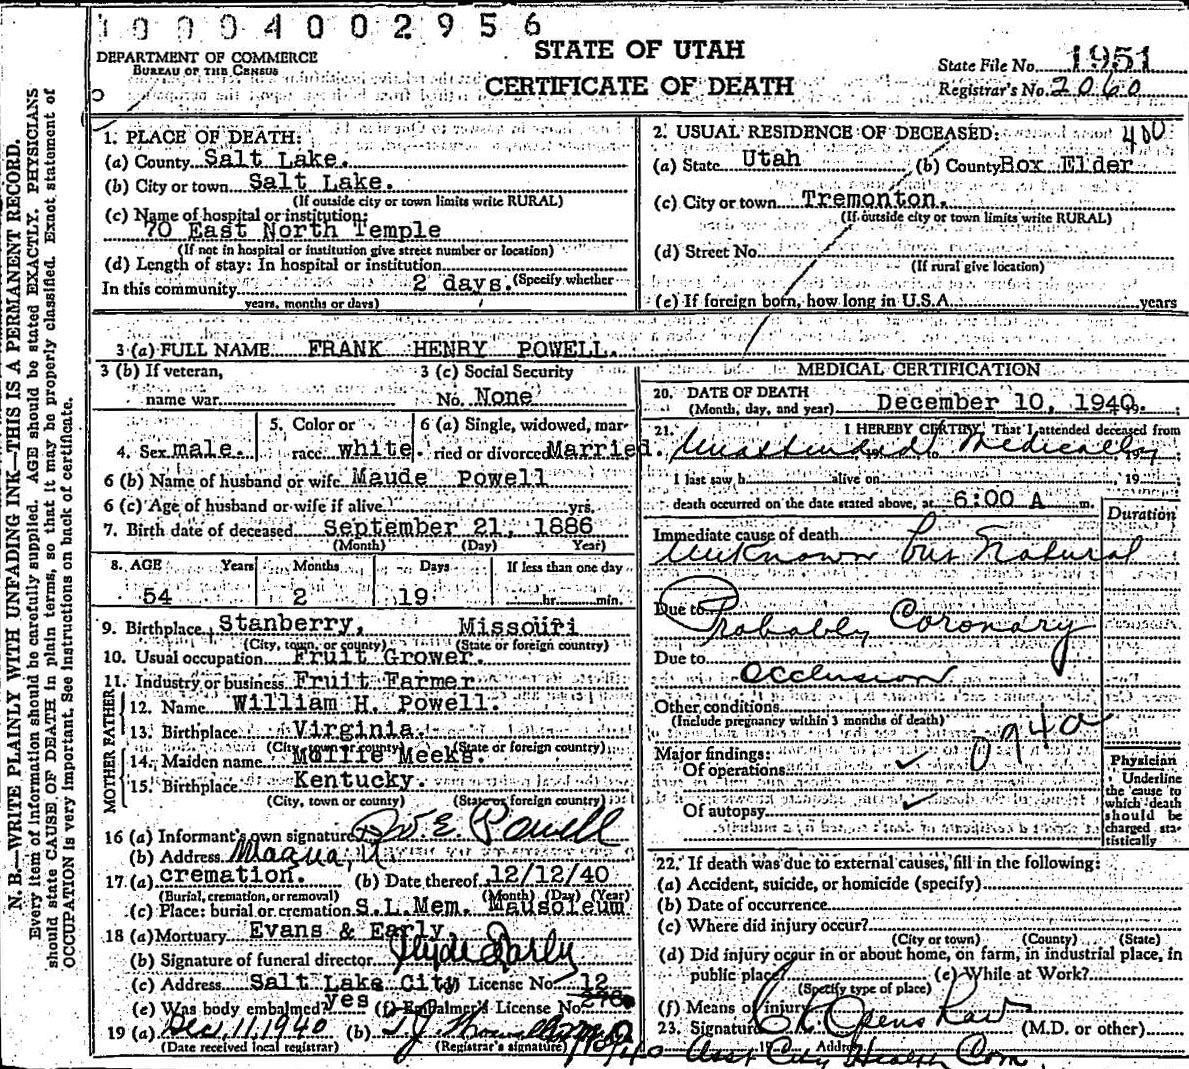 1 0 0 0 4 0 0 2 9 5 6
DEPARTMENT OF COMMERCE
BUREAU OF THE CENSUS
STATE OF UTAH
CERTIFICATE OF DEATH
State File No. 1951
Registrar's No. 2060
N. B.—WRITE PLAINLY WITH UNFADING INK—THIS IS A PERMANENT RECORD.
Every item of information should be carefully supplied. AGE should be stated EXACTLY. PHYSICIANS
should state CAUSE OF DEATH in plain terms, so that it may be properly classified. Exact statement of
OCCUPATION is very important. See Instructions on back of certificate.
1. PLACE OF DEATH:
(a) County Salt Lake.
(b) City or town Salt Lake.
(If outside city or town limits write RURAL)
(c) Name of hospital or institution:
70 East North Temple
(If not in hospital or institution give street number or location)
(d) Length of stay: In hospital or institution
In this community 2 days. (Specify whether
years, months or days)
2. USUAL RESIDENCE OF DECEASED: 400
(a) State Utah (b) County Box Elder
(c) City or town Tremonton.
(If outside city or town limits write RURAL)
(d) Street No.
(If rural give location)
(e) If foreign born, how long in U.S.A. years
3 (a) FULL NAME FRANK HENRY POWELL.
3 (b) If veteran, name war
3 (c) Social Security No. None
4. Sex male.
5. Color or race white.
6 (a) Single, widowed, married or divorced Married.
6 (b) Name of husband or wife Maude Powell
6 (c) Age of husband or wife if alive yrs.
7. Birth date of deceased September 21, 1886
(Month) (Day) (Year)
8. AGE Years Months Days If less than one day
54 2 19 hr. min.
9. Birthplace Stanberry, Missouri
(City, town, or county) (State or foreign country)
10. Usual occupation Fruit Grower.
11. Industry or business Fruit Farmer
FATHER
12. Name William H. Powell.
13. Birthplace Virginia.
(City, town or county) (State or foreign country)
MOTHER
14. Maiden name Mollie Meeks.
15. Birthplace Kentucky.
(City, town or county) (State or foreign country)
16 (a) Informant's own signature E. Powell
(b) Address Magna, U
17. (a) cremation. (b) Date thereof 12/12/40
(Burial, cremation, or removal) (Month) (Day) (Year)
(c) Place: burial or cremation S.L. Mem. Mausoleum
18 (a) Mortuary Evans & Early
(b) Signature of funeral director Clyde Early
(c) Address Salt Lake City (d) License No. 12
(e) Was body embalmed? yes (f) Embalmer's License No. 276.
19 (a) Dec. 11, 1940 (b)
(Date received local registrar) (Registrar's signature)
MEDICAL CERTIFICATION
20. DATE OF DEATH
(Month, day, and year) December 10, 1940.
21. I HEREBY CERTIFY, That I attended deceased from
Unattended Medically
I last saw h alive on , 19 ;
death occurred on the date stated above, at 6:00 A m.
Duration
Immediate cause of death
Unknown but Natural
Due to
Probably Coronary
Due to
occlusion
Other conditions
(Include pregnancy within 3 months of death)
094a
Major findings:
Of operations ✓
Of autopsy ✓
Physician
Underline
the cause to
which death
should be
charged sta-
tistically
22. If death was due to external causes, fill in the following:
(a) Accident, suicide, or homicide (specify)
(b) Date of occurrence
(c) Where did injury occur?
(City or town) (County) (State)
(d) Did injury occur in or about home, on farm, in industrial place, in
public place? (e) While at Work?
(Specify type of place)
(f) Means of injury
23. Signature Openshaw (M.D. or other)
Address Asst City Health Com.